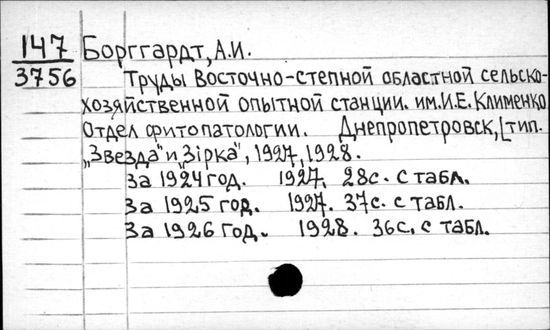 147 Борггардт, А.И.
3756 Труды Восточно-степной областной сельско-
хозяйственной опытной станции. им. И.Е. Клименко
Отдел фитопатологии. Днепропетровск, [тип.
„Звезда" и „Зірка", 1927, 1928.
За 1924 год. 1927, 28с. с табл.
За 1925 год. 1927. 37с. с табл.
За 1926 год. 1928. 36с. с табл.